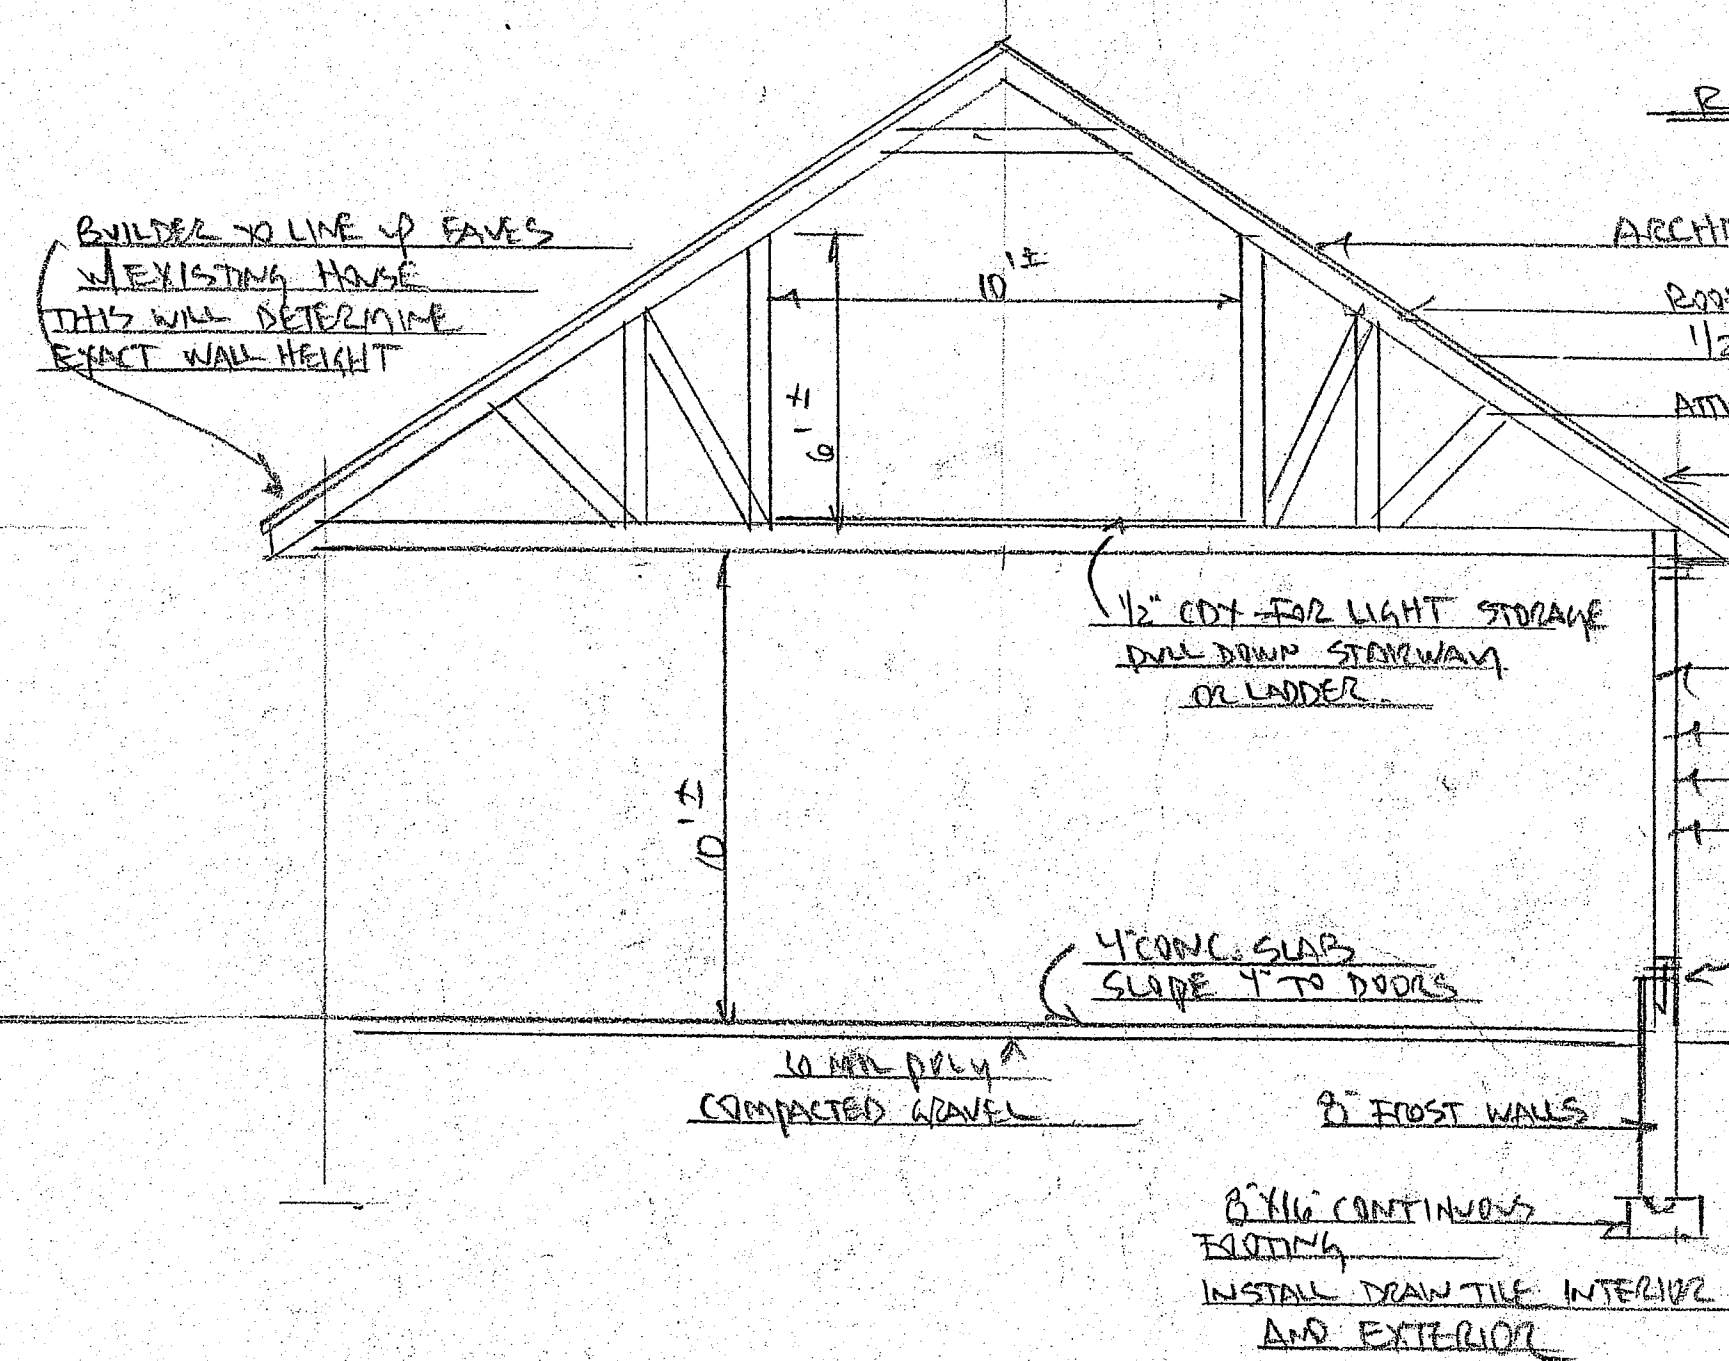 BUILDER TO LINE UP EAVES
W/EXISTING HOUSE
THIS WILL DETERMINE
EXACT WALL HEIGHT
R
ARCHI
ROOF
1/2
ATTI
10'±
6'±
1/2" CDX FOR LIGHT STORAGE
PULL DOWN STAIRWAY
OR LADDER.
10'±
4" CONC. SLAB
SLOPE 4" TO DOORS
6 MIL POLY
COMPACTED GRAVEL
8" FROST WALLS
8"X16" CONTINUOUS
FOOTING
INSTALL DRAIN TILE INTERIOR
AND EXTERIOR